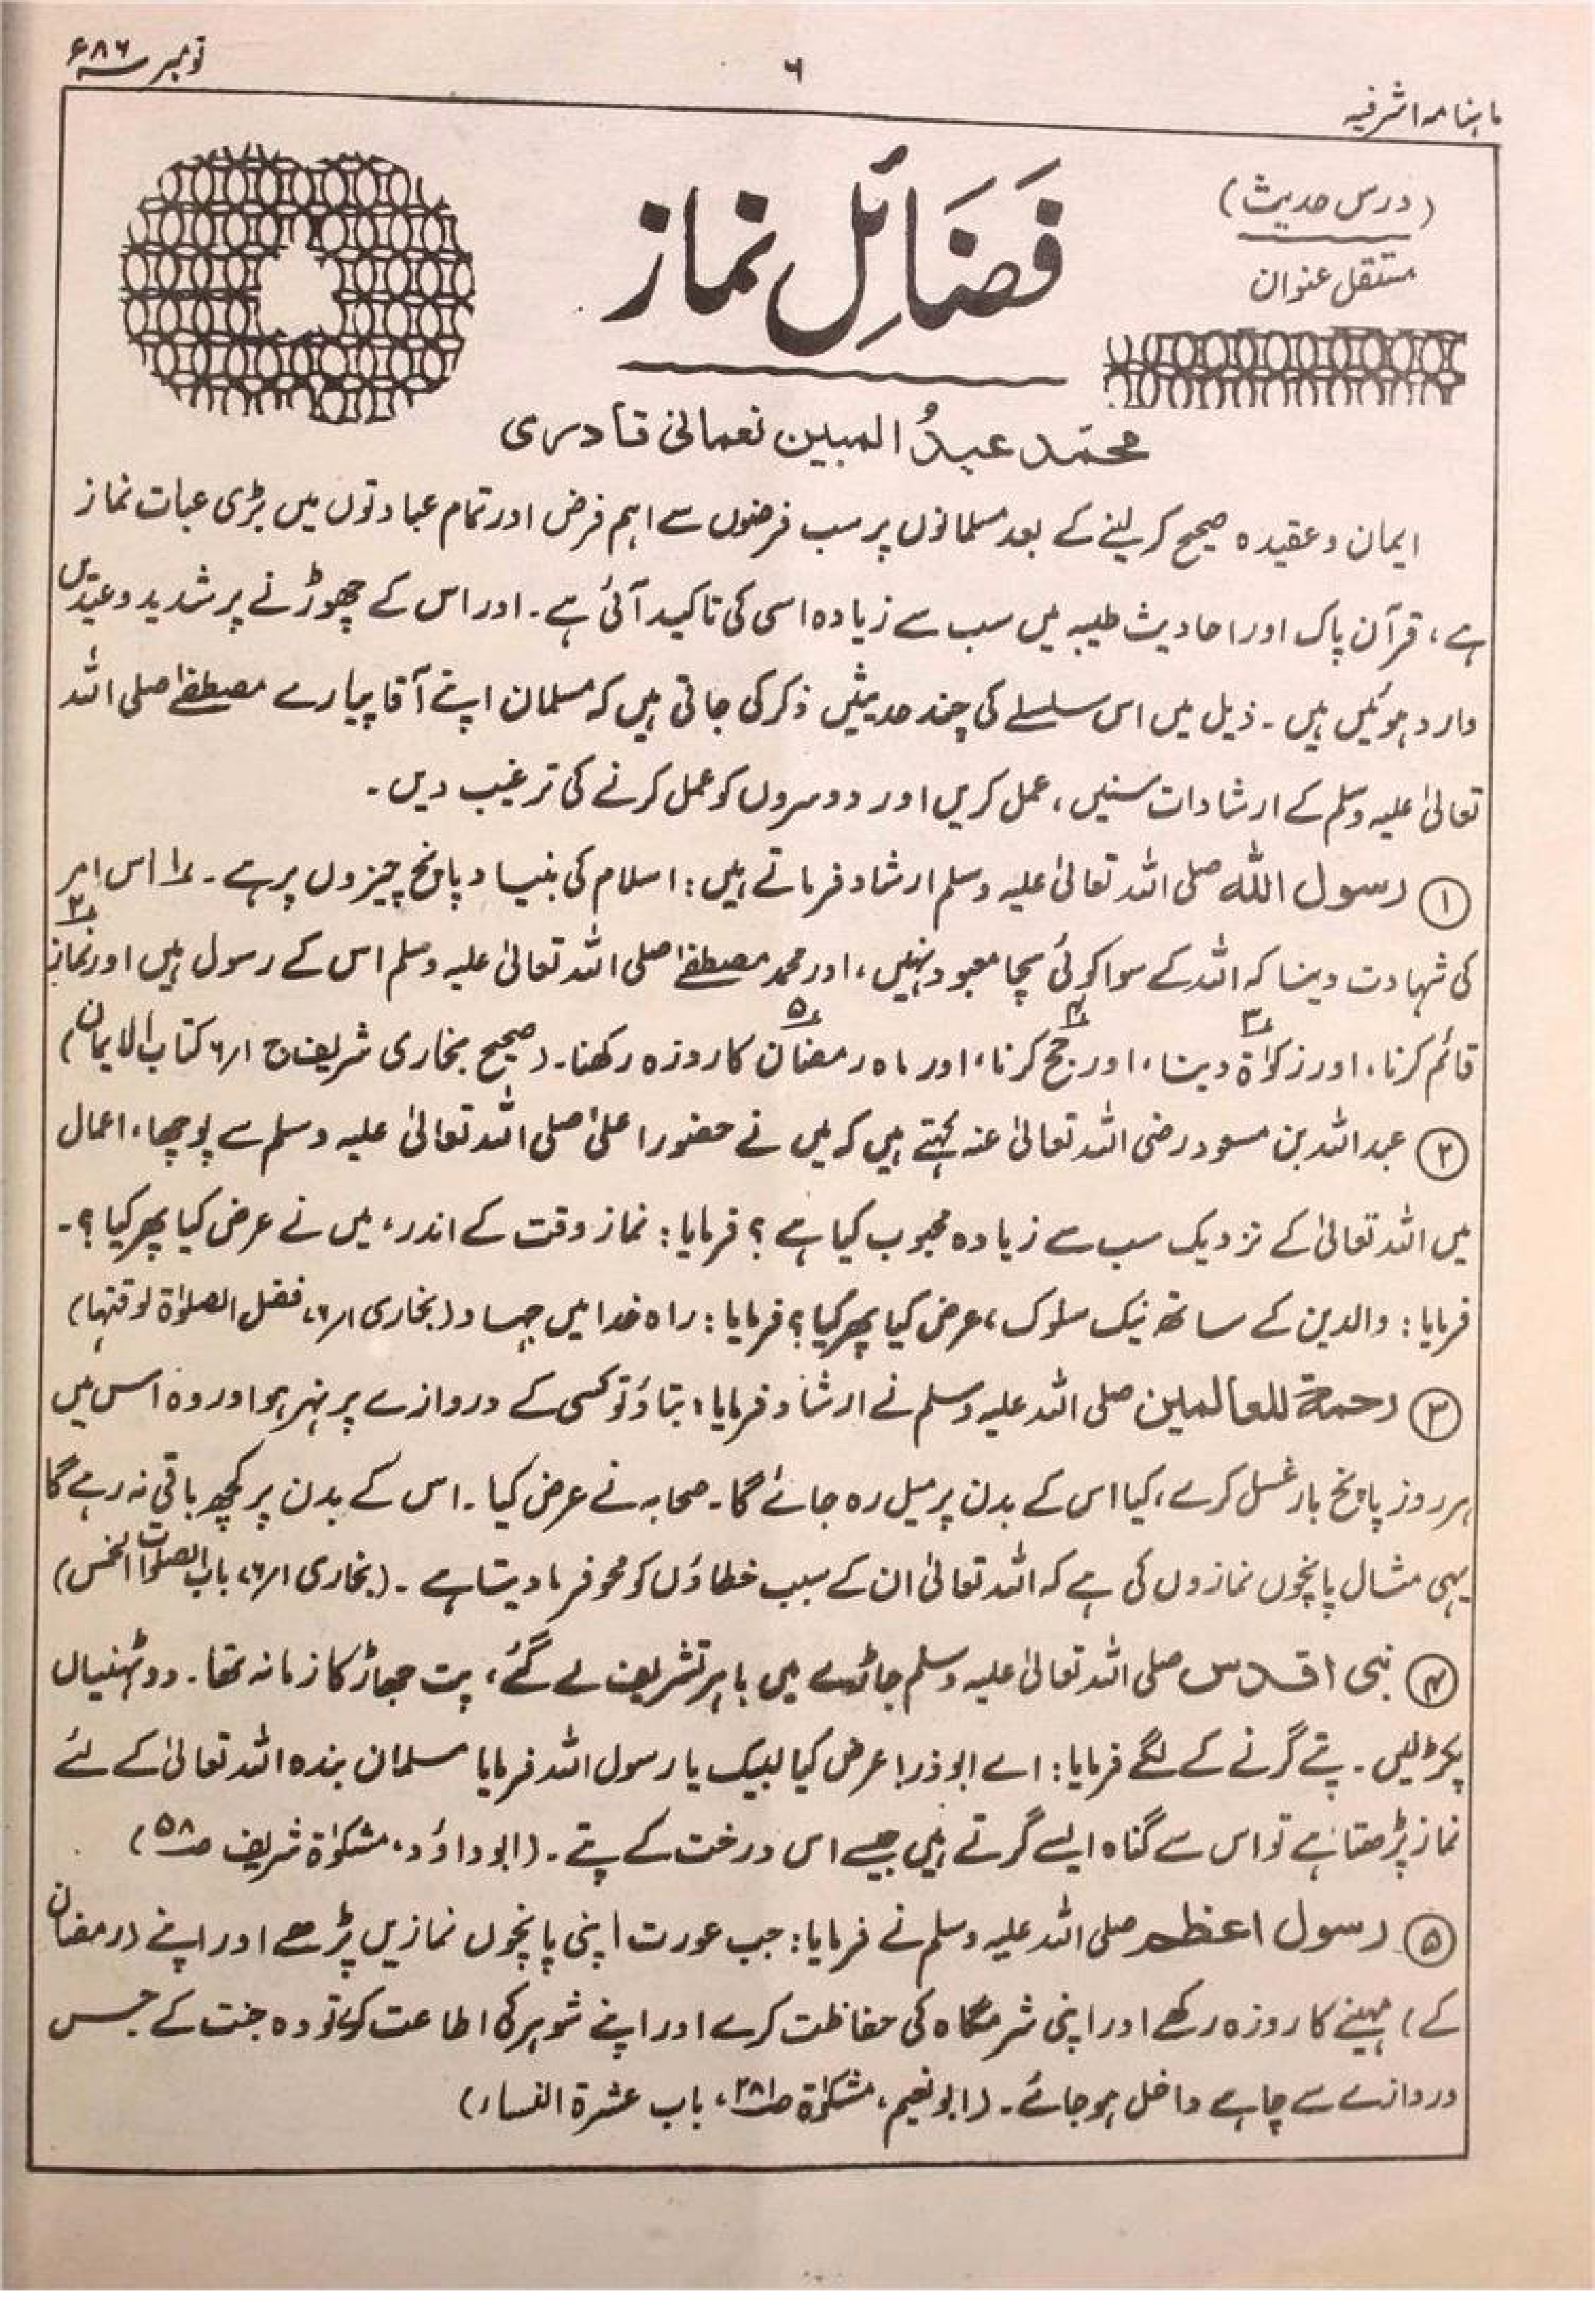 ماہنامہ اشرفیہ
۶
نومبر ۸۶ء
(درس حدیث)
مستقل عنوان
فَضَائِل نماز
محمّد عبدُ المبین نعمانی قادری
ایمان و عقیدہ صحیح کر لینے کے بعد مسلمانوں پر سب فرضوں سے اہم فرض اور تمام عبادتوں میں بڑی عبات نماز
ہے، قرآن پاک اور احادیث طیبہ میں سب سے زیادہ اسی کی تاکید آئی ہے۔ اور اس کے چھوڑنے پر شدید وعیدیں
وارد ہوئیں ہیں۔ ذیل میں اس سلسلے کی چند حدیثیں ذکر کی جاتی ہیں کہ مسلمان اپنے آقا پیارے مصطفےٰ صلی اللہ
تعالیٰ علیہ وسلم کے ارشادات سنیں، عمل کریں اور دوسروں کو عمل کرنے کی ترغیب دیں۔
① رسول اللہ صلی اللہ تعالیٰ علیہ وسلم ارشاد فرماتے ہیں: اسلام کی بنیاد پانچ چیزوں پر ہے۔ ۱؎ اس امر
کی شہادت دینا کہ اللہ کے سوا کوئی سچا معبود نہیں، اور محمد مصطفےٰ صلی اللہ تعالیٰ علیہ وسلم اس کے رسول ہیں اور ۲؎ نماز
قائم کرنا، اور ۳؎ زکوٰۃ دینا، اور ۴؎ حج کرنا، اور ۵؎ ماہ رمضان کا روزہ رکھنا۔ (صحیح بخاری شریف ج ۱/۶ کتاب الایمان)
② عبداللہ بن مسعود رضی اللہ تعالیٰ عنہ کہتے ہیں کہ میں نے حضور اعلیٰ صلی اللہ تعالیٰ علیہ وسلم سے پوچھا، اعمال
میں اللہ تعالیٰ کے نزدیک سب سے زیادہ محبوب کیا ہے؟ فرمایا: نماز وقت کے اندر، میں نے عرض کیا پھر کیا؟۔
فرمایا: والدین کے ساتھ نیک سلوک، عرض کیا پھر کیا؟ فرمایا: راہ خدا میں جہاد (بخاری ۱/۷۶، فضل الصلوٰۃ لوقتہا)
③ رحمۃ للعالمین صلی اللہ علیہ وسلم نے ارشاد فرمایا: بتاؤ تو کسی کے دروازے پر نہر ہو اور وہ اس میں
ہر روز پانچ بار غسل کرے، کیا اس کے بدن پر میل رہ جائے گا۔ صحابہ نے عرض کیا۔ اس کے بدن پر کچھ باقی نہ رہے گا
یہی مثال پانچوں نمازوں کی ہے کہ اللہ تعالیٰ ان کے سبب خطاؤں کو محو فرما دیتا ہے۔ (بخاری ۱/۷۶، باب الصلوات الخمس)
④ نبی اقدس صلی اللہ تعالیٰ علیہ وسلم جاڑے میں باہر تشریف لے گئے، پت جھاڑ کا زمانہ تھا۔ دو ٹہنیاں
پکڑ لیں۔ پتے گرنے کے لگے فرمایا: اے ابوذر! عرض کیا لبیک یا رسول اللہ فرمایا مسلمان بندہ اللہ تعالیٰ کے لئے
نماز پڑھتا ہے تو اس سے گناہ ایسے گرتے ہیں جیسے اس درخت کے پتے۔ (ابوداؤد، مشکوٰۃ شریف ص۵۸)
⑤ رسول اعظم صلی اللہ علیہ وسلم نے فرمایا: جب عورت اپنی پانچوں نمازیں پڑھے اور اپنے (رمضان
کے) مہینے کا روزہ رکھے اور اپنی شرمگاہ کی حفاظت کرے اور اپنے شوہر کی اطاعت کرے تو وہ جنت کے جس
دروازے سے چاہے داخل ہو جائے۔ (ابونعیم، مشکوٰۃ ص۲۸۱، باب عشرۃ النساء)